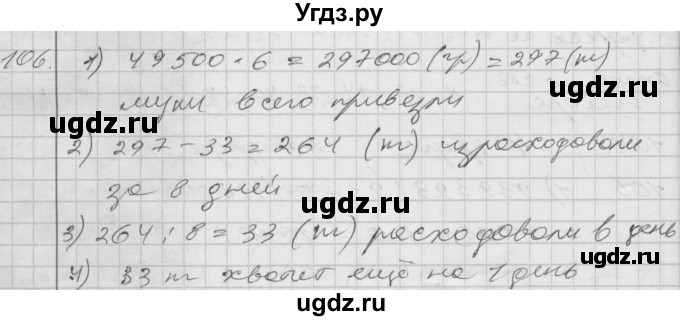 Угдз.ру
106. 1) 49500 · 6 = 297000 (гр) = 297 (т)
муки всего привезли
2) 297 - 33 = 264 (т) израсходовали
за 8 дней
3) 264 : 8 = 33 (т) расходовали в день
4) 33 т хватит ещё на 1 день
ugdz.ru ugdz.ru
ugdz.ru ugdz.ru
ugdz.ru ugdz.ru
ugdz.ru ugdz.ru
ugdz.ru